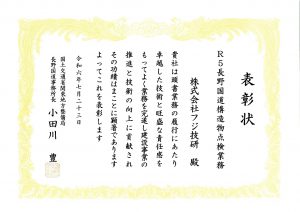 表彰状
R5長野国道構造物点検業務
株式会社フジ技研 殿
貴社は頭書業務の履行にあたり
卓越した技術と旺盛な責任感を
もってよく業務を完遂し建設事業の
推進と技術の向上に貢献され
その功績はまことに顕著であります
よってこれを表彰します
令和六年七月二十三日
国土交通省関東地方整備局
長野国道事務所長 小田川 豊